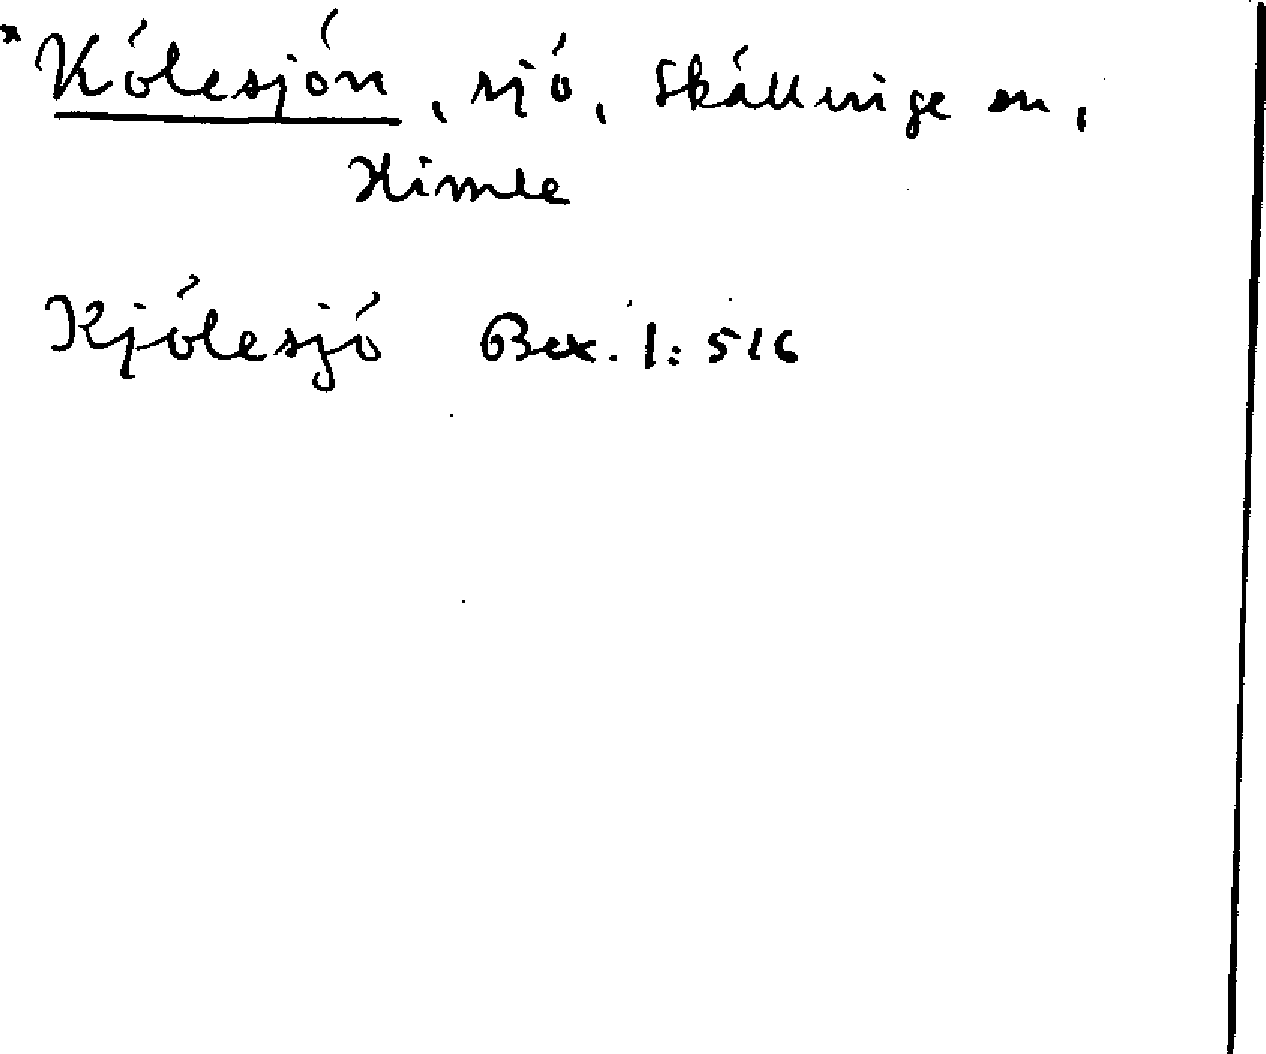 *Kölesjön, sjö, Skällinge sn,
Himle
Kjölesjö Bex. 1:516